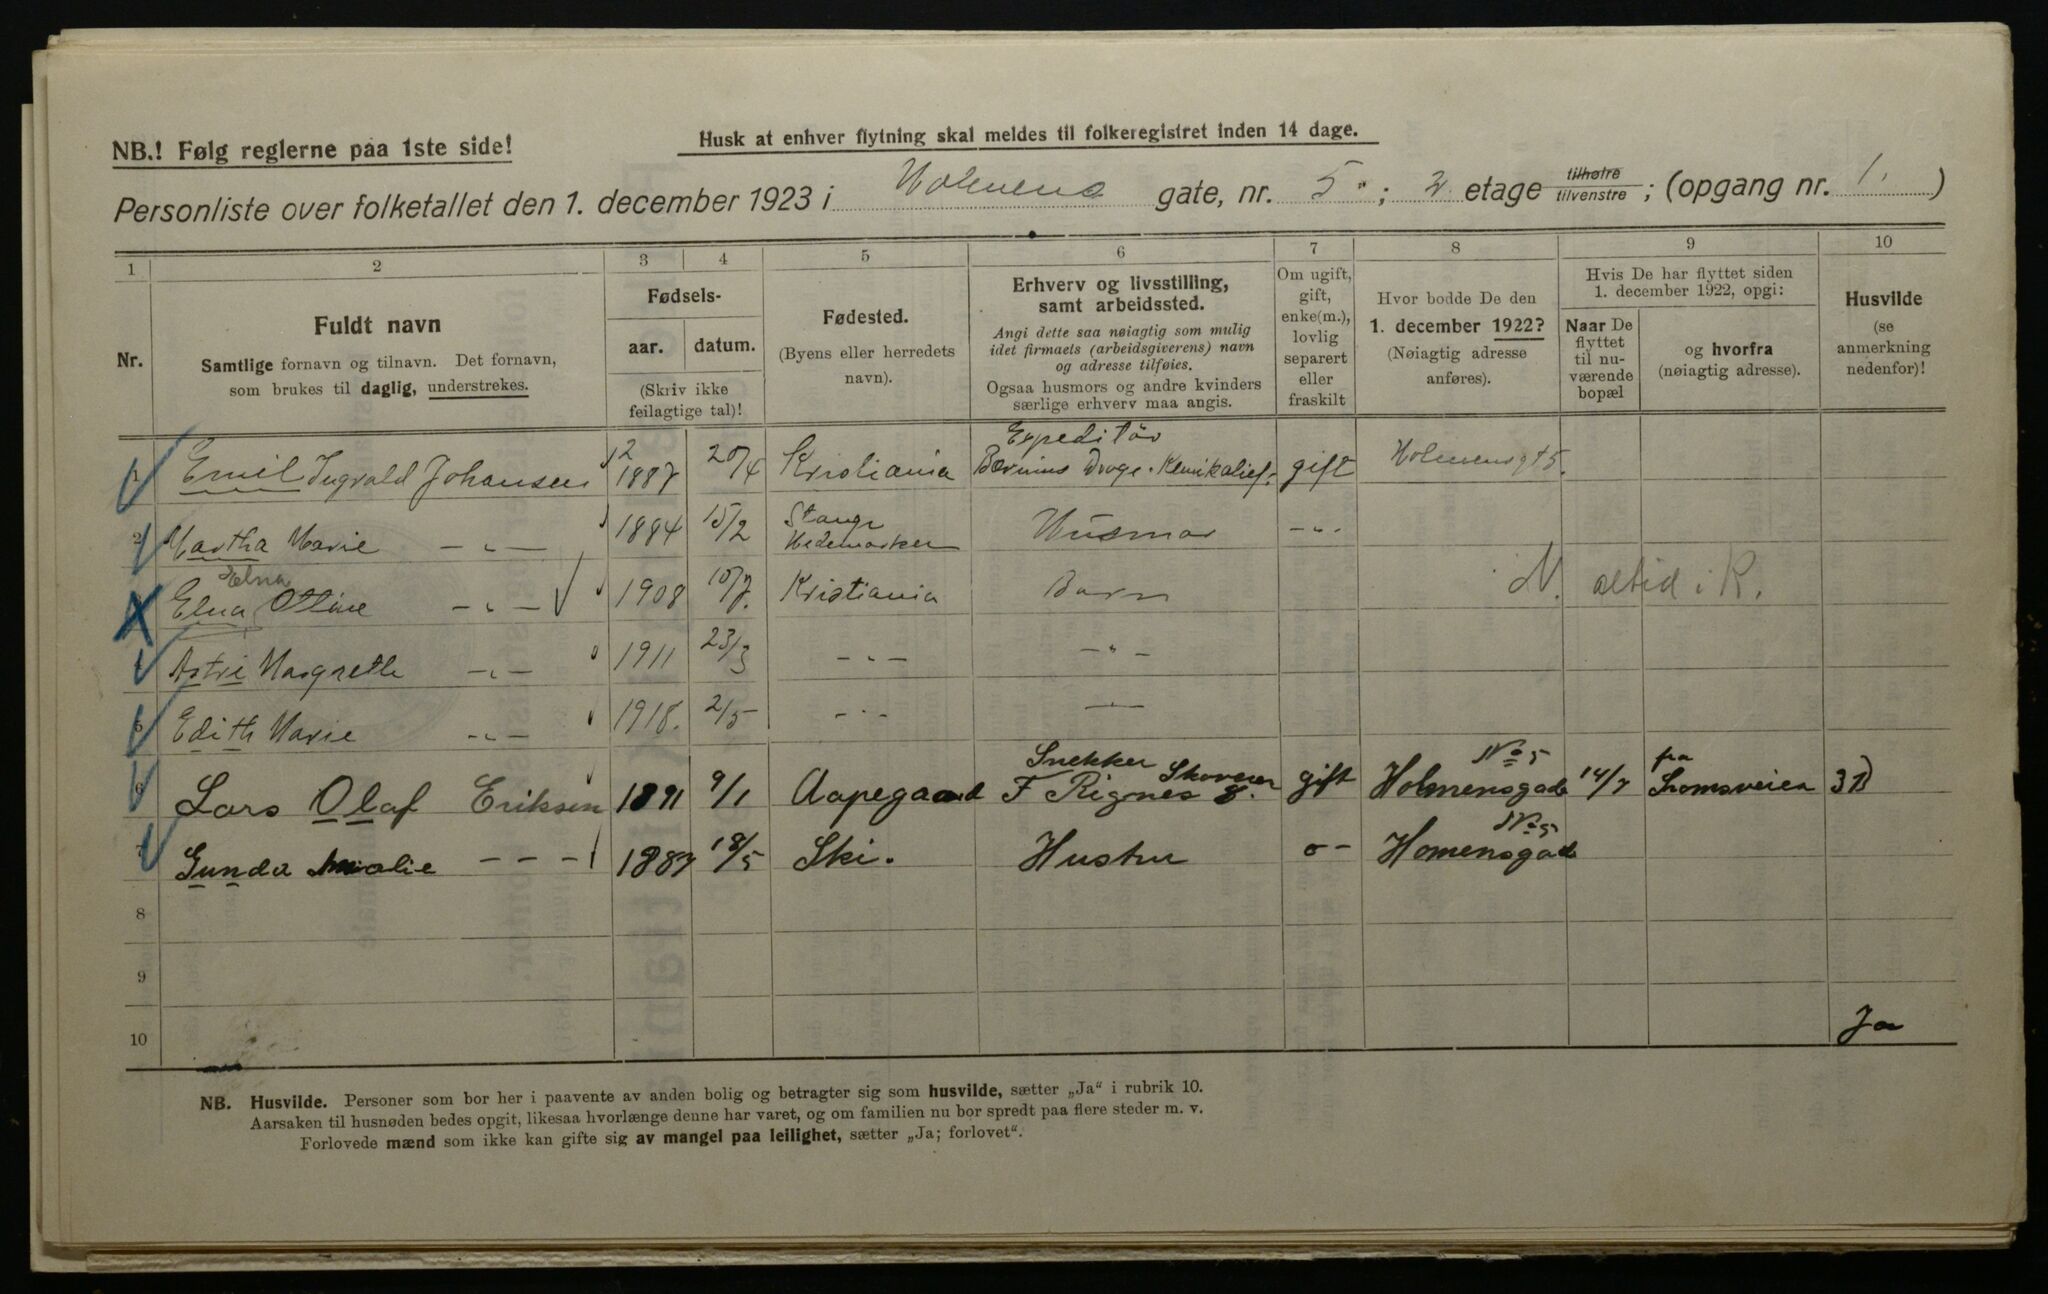 NB.! Følg reglerne paa 1ste side!
Husk at enhver flytning skal meldes til folkeregistret inden 14 dage.
Personliste over folketallet den 1. december 1923 i Holmens gate, nr. 5 ; 2 etage tilhøire tilvenstre ; (opgang nr. 1. )
1 2 3 4 5 6 7 8 9 10
Nr.
Fuldt navn
Samtlige fornavn og tilnavn. Det fornavn,
som brukes til daglig, understrekes.
Fødsels-
aar. datum.
(Skriv ikke
feilagtige tal)!
Fødested.
(Byens eller herredets
navn).
Erhverv og livsstilling,
samt arbeidssted.
Angi dette saa nøiagtig som mulig
idet firmaets (arbeidsgiverens) navn
og adresse tilføies.
Ogsaa husmors og andre kvinders
særlige erhverv maa angis.
Om ugift,
gift,
enke(m.),
lovlig
separert
eller
fraskilt
Hvor bodde De den
1. december 1922?
(Nøiagtig adresse
anføres).
Hvis De har flyttet siden
1. december 1922, opgi:
Naar De
flyttet
til nu-
værende
bopæl
og hvorfra
(nøiagtig adresse).
Husvilde
(se
anmerkning
nedenfor)!
Expeditør
1 Emil Ingvald Johansen 1887 20/4 Kristiania Droge. Kemikalief. gift Holmensgt 5.
2
2 Martha Marie -„- 1884 15/2 Stange Hedemarken Husmor -„-
Elna
3 Elna Otine -„- 1908 10/7. Kristiania Barn N. altid i K.
4 Astri Margrethe -„- 1911 23/3 -„- -„-
5 Edith Marie -„- 1918. 2/5 -„- -„-
Snekker No 5 fra
6 Lars Olaf Eriksen 1891 9/1 Aapegaard F Rignes gift Holmensgade 14/7
No 5
7 Gunda Amalie - - - 1887 18/5 Ski. Hustru o- Homensgade
8
9
10 Ja
NB. Husvilde. Personer som bor her i paavente av anden bolig og betragter sig som husvilde, sætter „Ja“ i rubrik 10.
Aarsaken til husnøden bedes opgit, likesaa hvorlænge denne har varet, og om familien nu bor spredt paa flere steder m. v.
Forlovede mænd som ikke kan gifte sig av mangel paa leilighet, sætter „Ja; forlovet“.